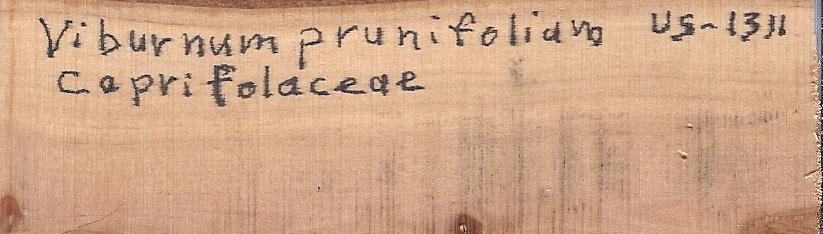 Viburnum prunifolium US-1311
Caprifolaceae